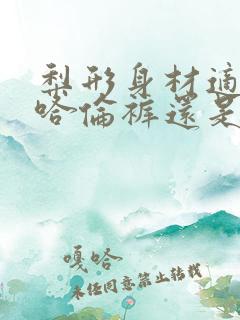 梨形身材适
哈倫裤還是
嘎哈
未经同意禁止转载